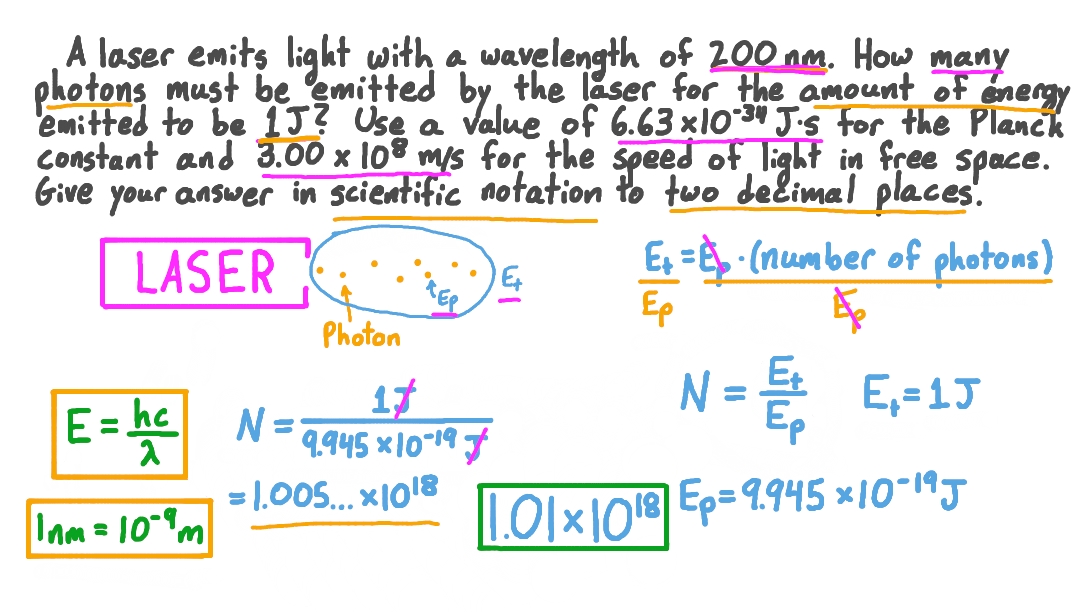 A laser emits light with a wavelength of 200 nm. How many
photons must be emitted by the laser for the amount of energy
emitted to be 1J? Use a value of 6.63 x10⁻³⁴ J·s for the Planck
constant and 3.00 x 10⁸ m/s for the speed of light in free space.
Give your answer in scientific notation to two decimal places.
LASER
Eₚ
Eₜ
Photon
Eₜ = Eₚ · (number of photons)
Eₚ Eₚ
N = Eₜ/Eₚ
Eₜ = 1J
E = hc/λ
N = 1J/9.945 x10⁻¹⁹ J
= 1.005... x10¹⁸
1.01 x10¹⁸
Eₚ = 9.945 x10⁻¹⁹ J
1nm = 10⁻⁹ m